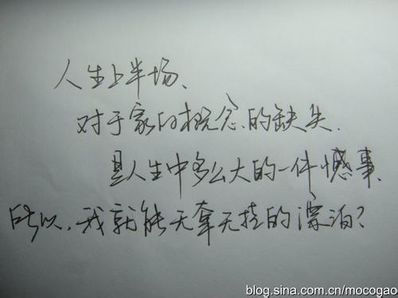 人生上半场、
对于家的概念的缺失.
是人生中多么大的一件憾事.
所以,我就能无牵无挂的漂泊?
blog.sina.com.cn/mocogao